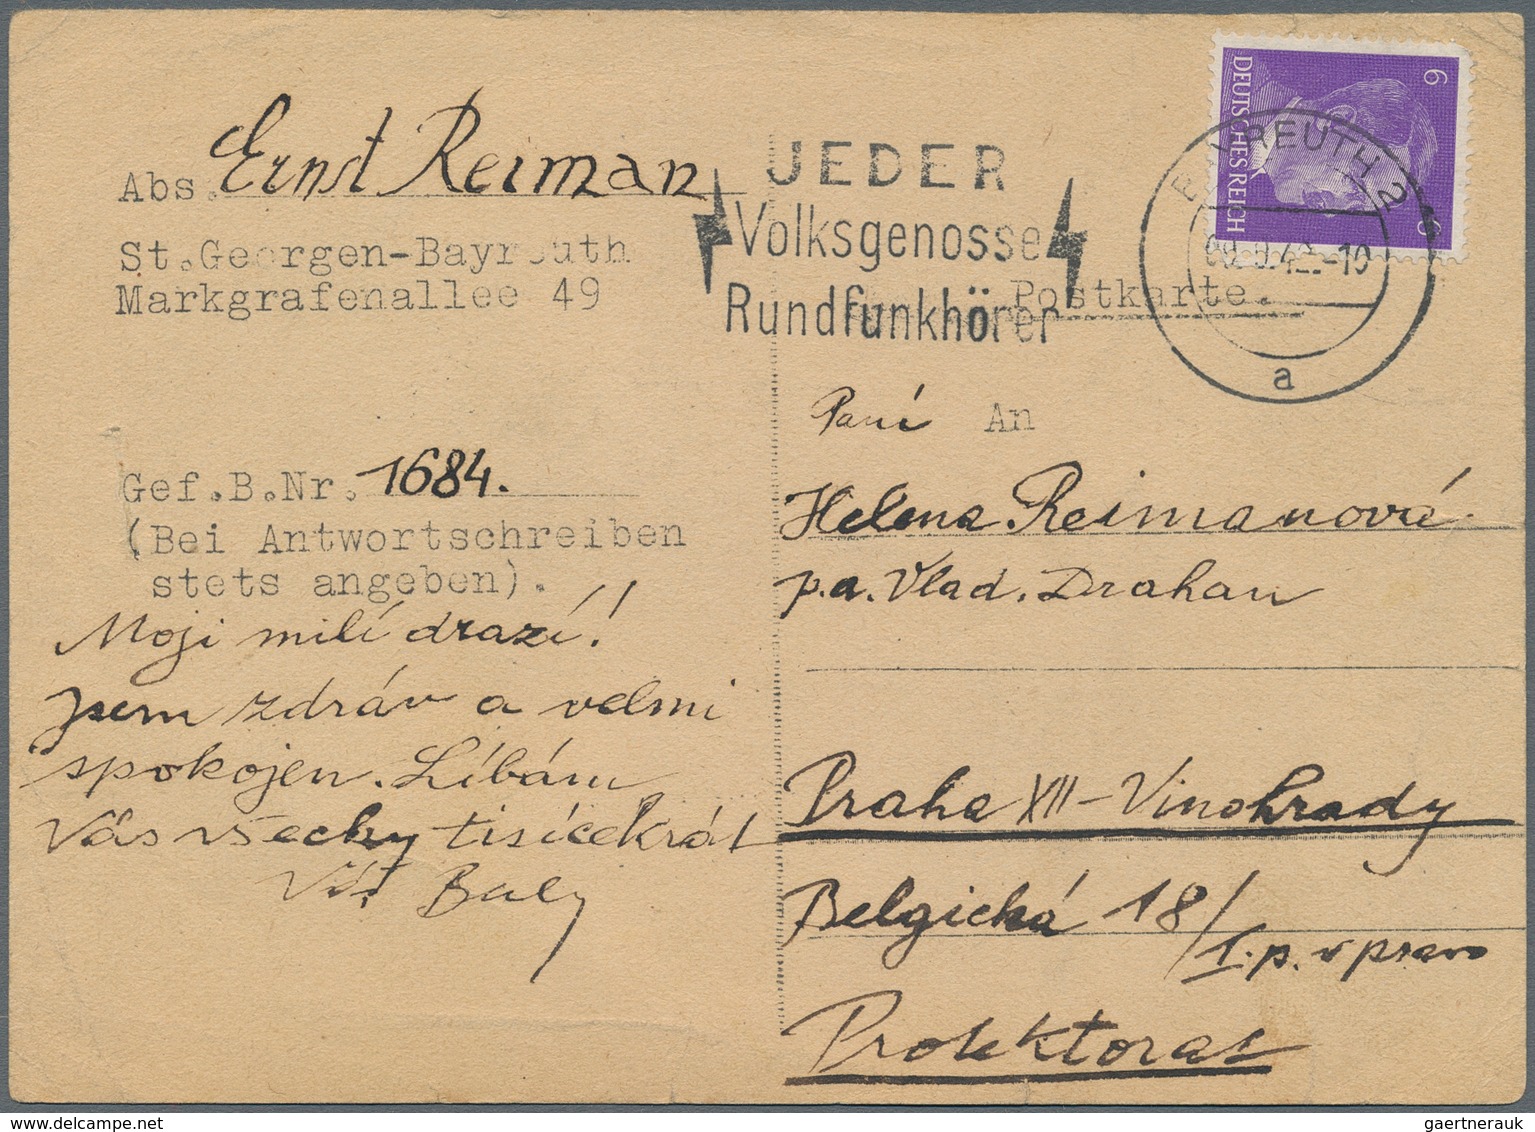 Abs. Ernst Reiman
St.Georgen-Bayreuth
Markgrafenallee 49
Gef.B.Nr. 1684.
(Bei Antwortschreiben
stets angeben).
Moji milí drazí!
jsem zdráv a velmi
spokojen. Líbám
Vás všecky tisícekrát
Váš
JEDER
Volksgenosse
Rundfunkhörer
6 6
DEUTSCHES REICH
BAYREUTH 2
a
Postkarte.
Paní An
Helena Reimanová
p.a. Vlad. Drahan
Praha XII - Vinohrady
Belgická 18/
I.p. vpravo
Protektorat
gaertnerauk